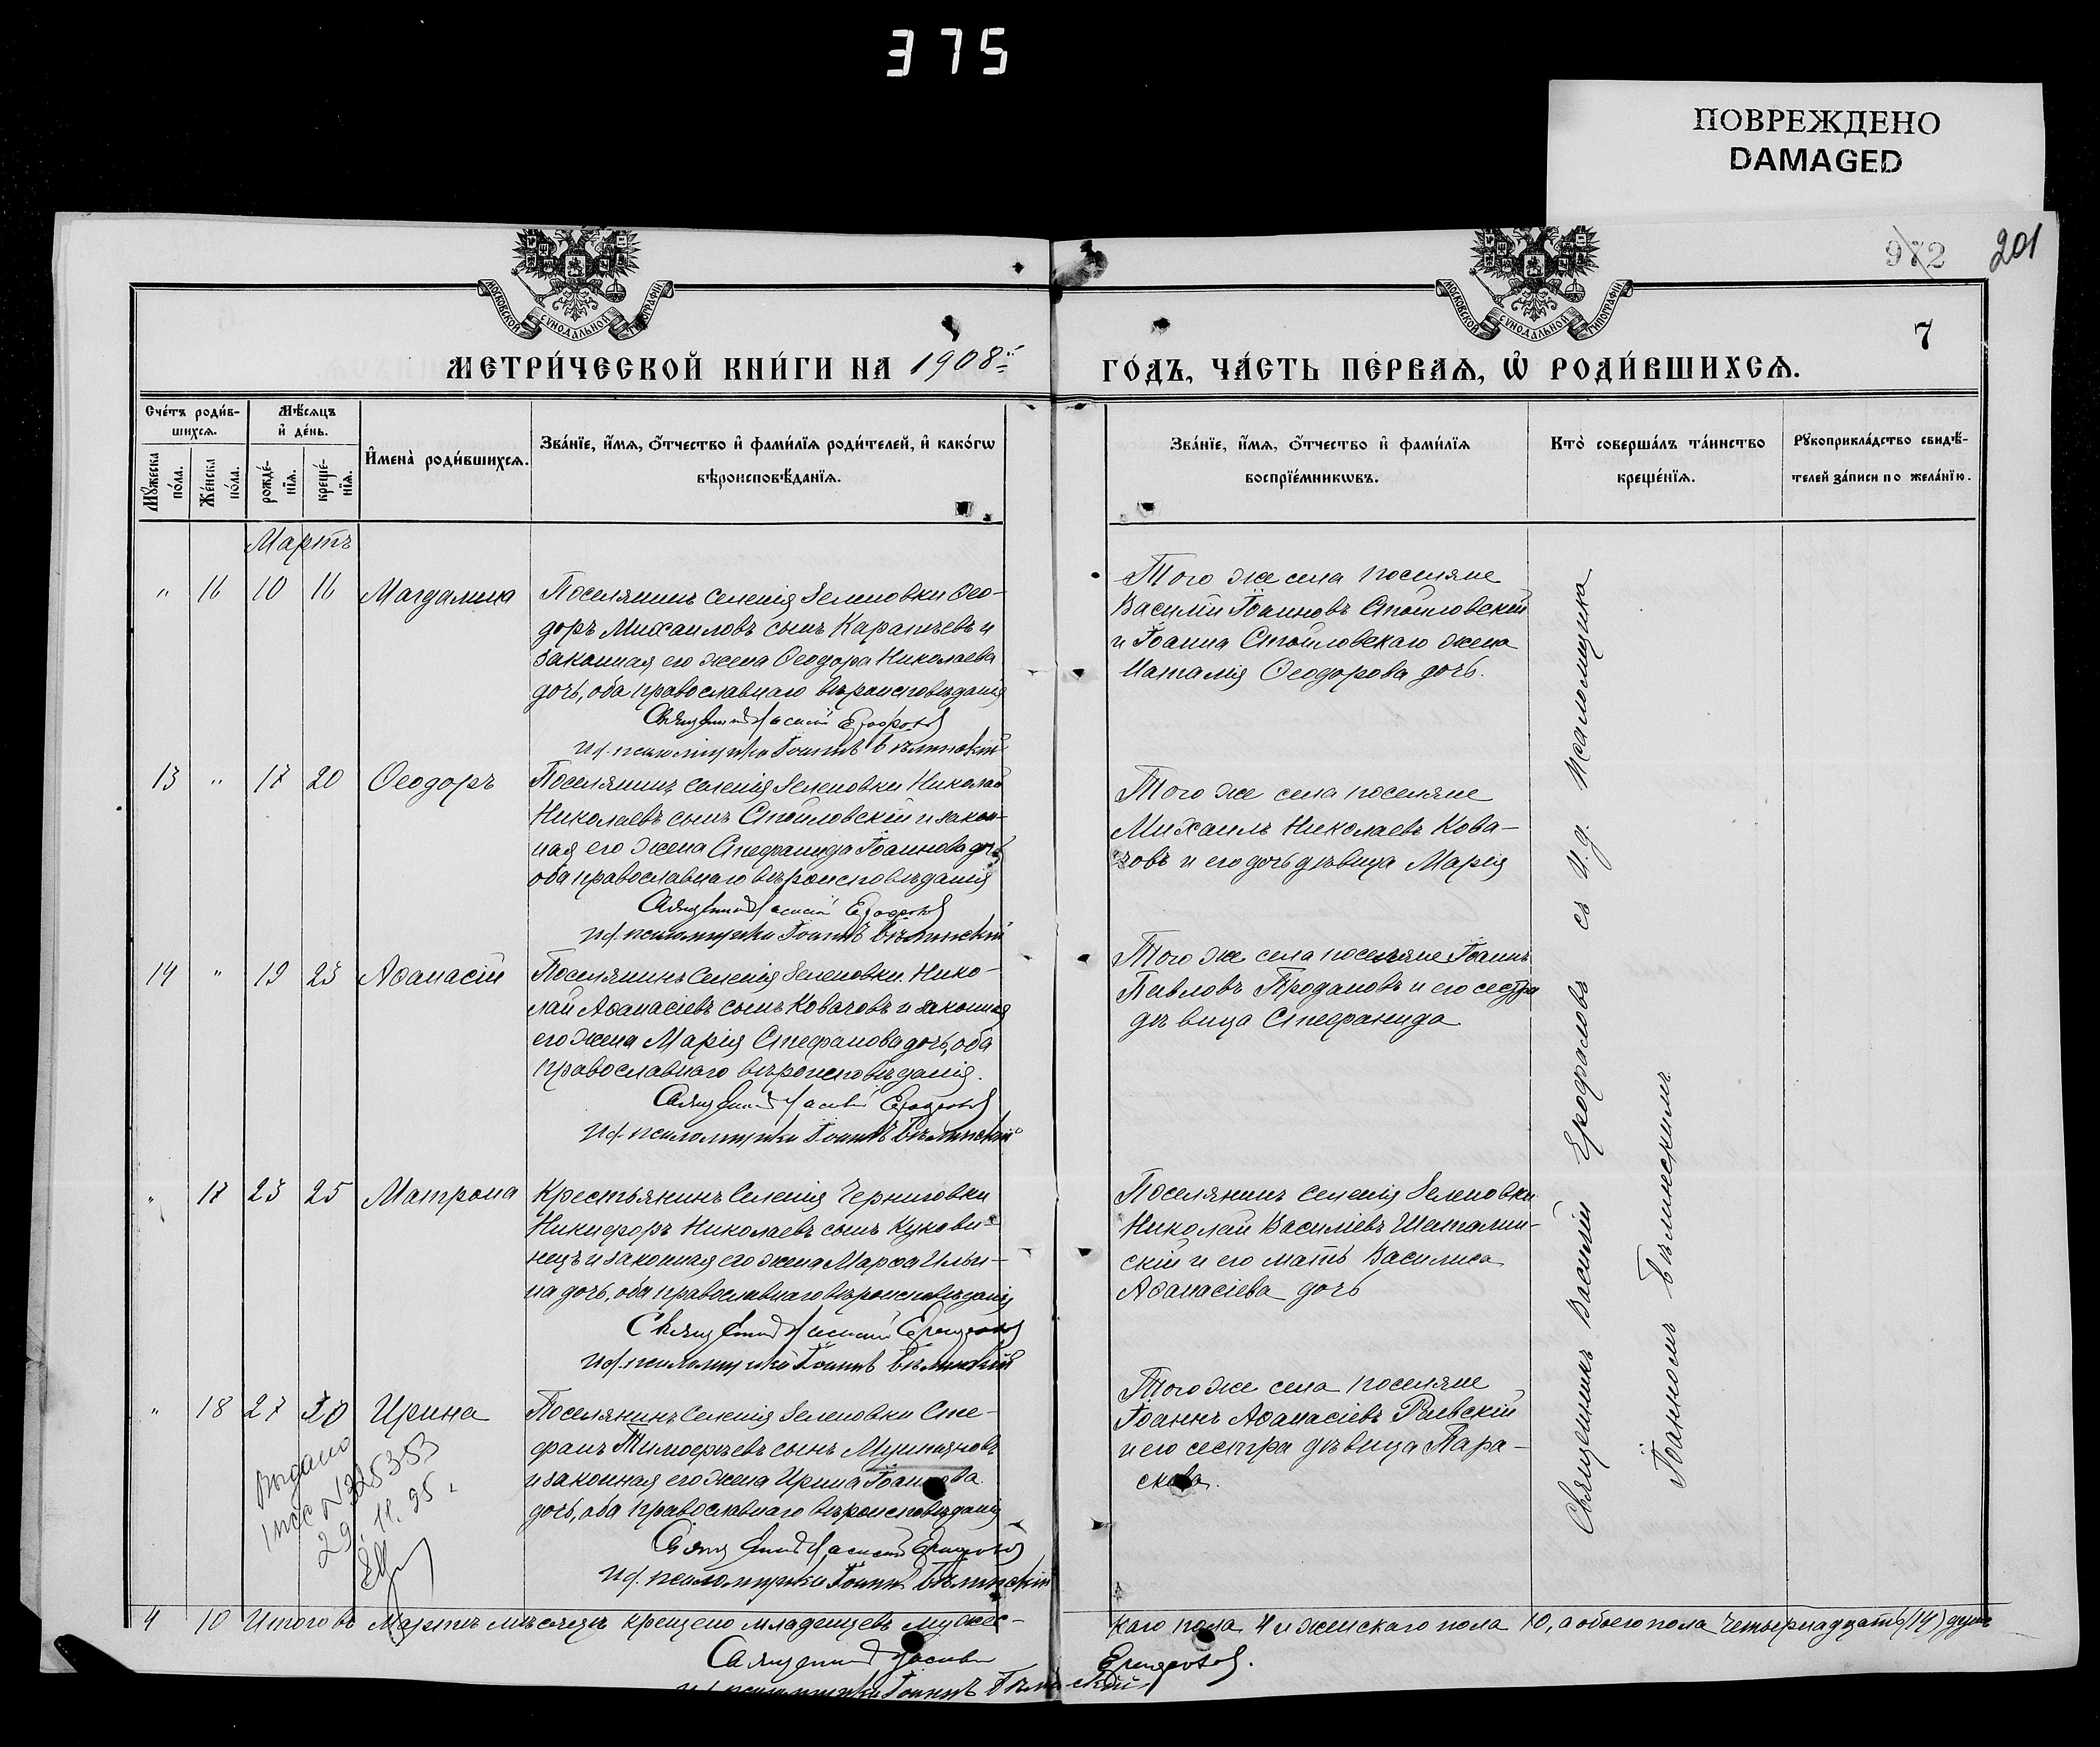 375
ПОВРЕЖДЕНО
DAMAGED
972 201
МОСКОВСКОЙ СѴНОДАЛЬНОЙ ТИПОГРАФІИ
МОСКОВСКОЙ СѴНОДАЛЬНОЙ ТИПОГРАФІИ
7
МЕТРИ́ЧЕСКОЙ КНИ́ГИ НА 1908й
ГО́ДЪ, ЧА́СТЬ ПЕ́РВАѦ, Ѡ РОДИ́ВШИХСѦ.
Сче́тъ роди́в-
шихсѧ.
Мꙋ́жеска по́ла.
Же́нска по́ла.
Мѣ́сѧцъ
и҆ де́нь.
рожде́-
нїѧ.
креще́-
нїѧ.
И҆мена̀ роди́вшихсѧ.
Зва́нїе, и҆́мѧ, ѻ҆́тчество и҆ фами́лїѧ роди́телей, и҆ како́гѡ
вѣроисповѣ́данїѧ.
Зва́нїе, и҆́мѧ, ѻ҆́тчество и҆ фами́лїѧ
воспрїе́мникѡвъ.
Кто̀ соверша́лъ та́инство
креще́нїѧ.
Рꙋкоприкла́дство свидѣ́-
телей за́писи по жела́нїю.
Мартъ
" 16 10 16 Магдалина
Поселянинъ селенія Зеленовки Ѳео-
доръ Михаиловъ сынъ Карапѣевъ и
законная его жена Ѳеодора Николаева
дочь, оба православнаго вѣроисповѣданія
Священникъ Василій Ерофаловъ
И.д. псаломщика Іоаннъ Бѣлинскій
Того же села поселяне
Василій Іоанновъ Стойловскій
и Іоанна Стойловскаго жена
Наталія Ѳеодорова дочь.
13 " 17 20 Ѳеодоръ
Поселянинъ селенія Зеленовки Николай
Николаевъ сынъ Стойловскій и закон-
ная его жена Стефанида Іоаннова дочь
оба православнаго вѣроисповѣданія
Священникъ Василій Ерофаловъ
И.д. псаломщика Іоаннъ Бѣлинскій
Того же села поселяне
Михаилъ Николаевъ Кова-
човъ и его дочь дѣвица Марія
14 " 19 23 Аѳанасій
Поселянинъ селенія Зеленовки Нико-
лай Аѳанасіевъ сынъ Ковачовъ и законная
его жена Марія Стефанова дочь, оба
православнаго вѣроисповѣданія.
Священникъ Василій Ерофаловъ
И.д. псаломщика Іоаннъ Бѣлинскій
Того же села поселяне Іоаннъ
Павловъ Продановъ и его сестра
дѣвица Стефанида
" 17 23 25 Матрона
Крестьянинъ селенія Черниговки
Никифоръ Николаевъ сынъ Кукови-
нецъ и законная его жена Марѳа Ильи-
на дочь, оба православнаго вѣроисповѣданія
Священникъ Василій Ерофаловъ
И.д. псаломщика Іоаннъ Бѣлинскій
Поселянинъ селенія Зеленовки
Николай Василіевъ Шаталин-
скій и его мать Василиса
Аѳанасіева дочь
" 18 27 30 Ирина
Поселянинъ селенія Зеленовки Сте-
фанъ Тимоѳѣевъ сынъ
и законная его жена Ирина Іоаннова
дочь, оба православнаго вѣроисповѣданія
Священникъ Василій Ерофаловъ
И.д. псаломщика Іоаннъ Бѣлинскій
Того же села поселяне
Іоаннъ Аѳанасіевъ Раевскій
и его сестра дѣвица Пара-
скева.
Выдано
N 325353
29.11.95.
Священникъ Василій Ерофаловъ съ И.д. псаломщика
Іоанномъ Бѣлинскимъ
4 10 Итого въ Мартѣ мѣсяцѣ крещено младенцевъ мужес-
каго пола 4 и женскаго пола 10, а обоего пола четырнадцать (14) душъ
Священникъ Василій Ерофаловъ.
И.д. псаломщика Іоаннъ Бѣлинскій